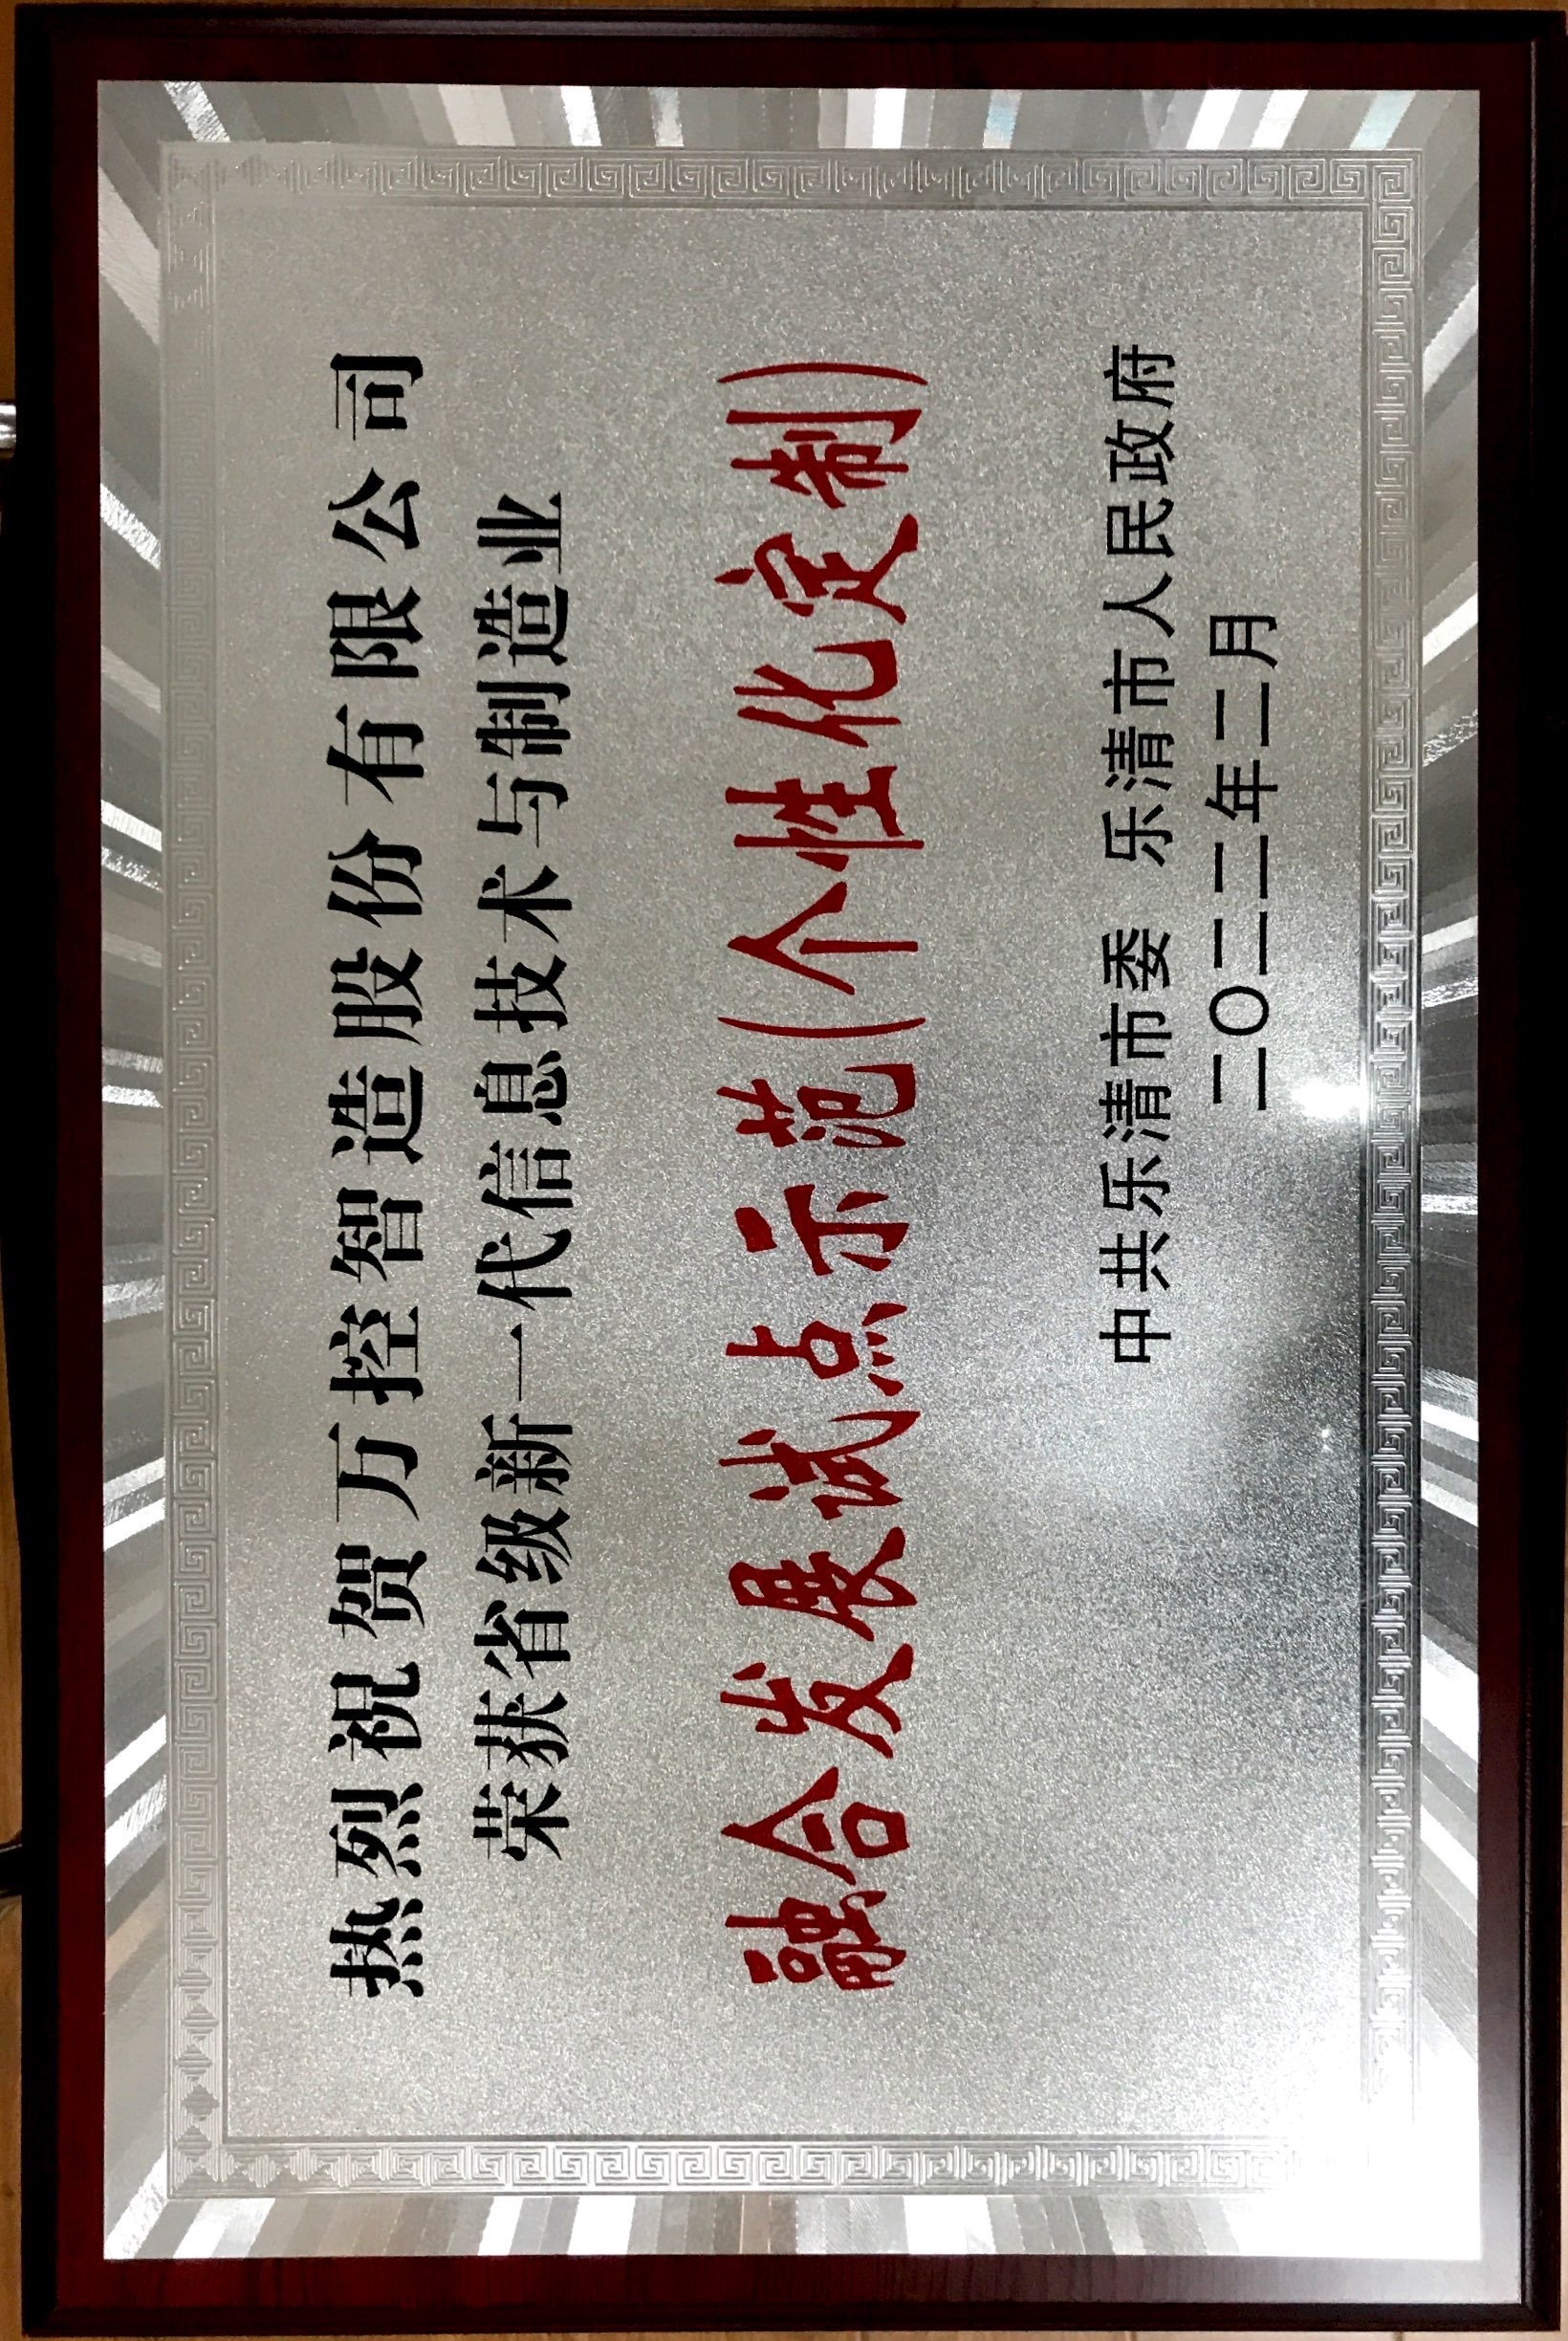 热烈祝贺万控智造股份有限公司
荣获省级新一代信息技术与制造业
融合发展试点示范(个性化定制)
中共乐清市委 乐清市人民政府
二〇二二年二月